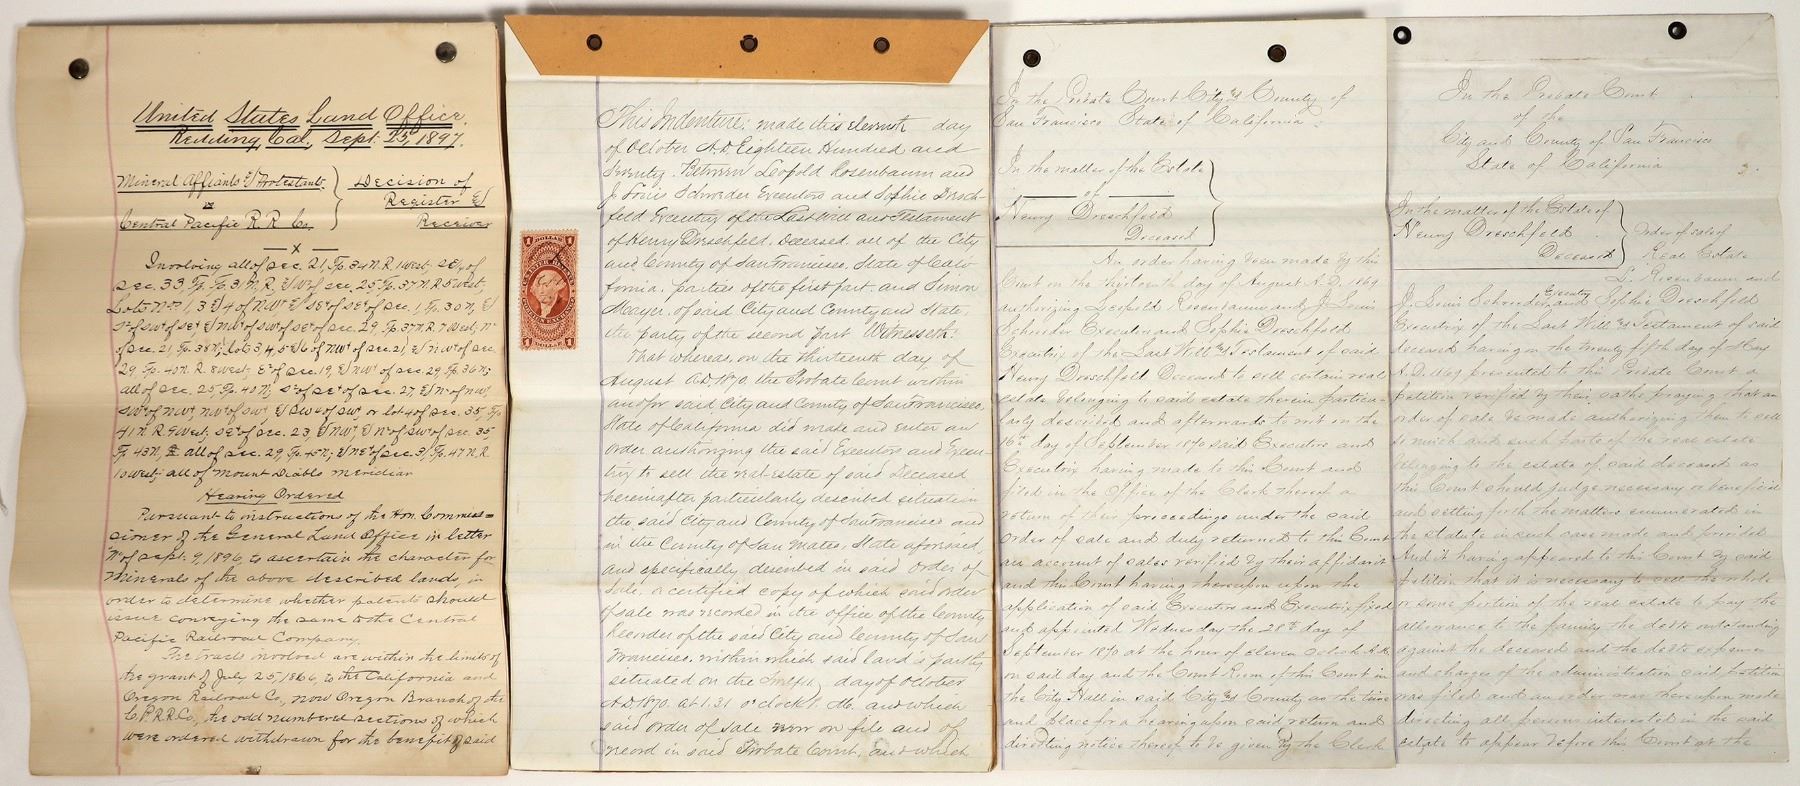 United States Land Office,
Redding, Cal., Sept. 25, 1897.
Mineral Affiants & Protestants
vs
Central Pacific R.R Co.
Decision of
Register &
Receiver
x
Involving all of sec. 21, Tp. 34 N. R. 1 West; SE/4 of
sec. 33, Tp. 31 N. R. sec. 25, Tp. 37 N. R. 5 West;
Lots Nos 1, 3 & 4 of sec. 1, Tp. 30 N, &
of sec. 29, Tp. 37 N. R. 7 West;
of sec. 21, Tp. 38 N; Lots 3, 4, 5 & 6 of of sec. 21, & of sec.
29, Tp. 40 N. R. 8 West; of sec. 19, & of sec. 29, Tp. 36 N;
all of sec. 25, Tp. 40 N; of sec. 27, &
or lot 4 of sec. 35, Tp
41 N. R. 9 West; of sec. 23, of sec. 35,
Tp. 43 N, & all of sec. 29, Tp. 45 N; & of sec. 31, Tp. 47 N. R.
10 West; all of Mount Diablo Meridian
Hearing Ordered
Pursuant to instruction of the Hon. Commis=
sioner of the General Land Office in letter
"N" of Sept. 9, 1896, to ascertain the character for
minerals of the above described lands, in
order to determine whether patents should
issue conveying the same to the Central
Pacific Railroad Company.
The tracts involved are within the limits of
the grant of July 25, 1866, to the California and
Oregon Railroad Co., now Oregon Branch of the
C.P.R.R.Co., the odd numbered sections of which
were ordered withdrawn for the benefit of said
This Indenture; made this eleventh day
of October A.D. Eighteen Hundred and
Seventy. Between Leopold Rosenbaum and
J. Louis Schroeder Executors and Sophie Dresch-
feld Executrix of the Last Will and Testament
of Henry Dreschfeld, Deceased, all of the City
and County of San Francisco, State of Cali
fornia, parties of the first part, and Simon
Mayer, of said City and County and State,
the party of the second part Witnesseth:
That whereas, on the thirteenth day of
August A.D. 1870, the Probate Court within
and for said City and County of San Francisco,
State of California did make and enter an
order authorizing the said Executors and Execu-
trix to sell the real estate of said Deceased
hereinafter particularly described situate in
the said City and County of San Francisco and
in the County of San Mateo, State aforesaid,
and specifically described in said order of
sale, a certified copy of which said order
of sale was recorded in the office of the County
Recorder of the said City and County of San
Francisco, within which said land is partly
situated on the Twelfth day of October
A.D. 1870, at 1.31 o'clock P. M. and which
said order of sale now on file and of
record in said Probate Court, and which
DOLLAR
1
1
1 DOLLAR 1
In the Probate Court City & County of
San Francisco State of California
In the matter of the Estate
of
Henry Dreschfeld
Deceased
An order having been made by this
Court on the thirteenth day of August A.D. 1869
authorizing Leopold Rosenbaum and J. Louis
Schroder Executors and Sophie Dreschfeld
Executrix of the Last Will & Testament of said
Henry Dreschfeld Deceased to sell certain real
estate belonging to said estate therein particu-
larly described and afterwards to wit on the
16th day of September 1870 said Executors and
Executrix having made to this Court and
filed in the Office of the Clerk thereof a
return of their proceedings under the said
order of sale and duly returned to this Court
an account of sales verified by their affidavit
and this Court having thereupon upon the
application of said Executors and Executrix fixed
and appointed Wednesday the 28th day of
September 1870 at the hour of eleven oclock A.M.
on said day and the Court Room of this Court in
the City Hall in said City & County as the time
and place for a hearing upon said return and
directing notice thereof to be given by the Clerk
In the Probate Court
of the
City and County of San Francisco
State of California
In the matter of the Estate of
Henry Dreschfeld
Deceased
Order of sale of
Real Estate
L. Rosenbaum and
J. Louis Schroeder Executors and Sophie Dreschfeld
Executrix of the Last Will & Testament of said
deceased having on the twenty fifth day of May
A.D. 1869 presented to this Probate Court a
petition verified by their oaths praying that an
order of sale be made authorizing them to sell
so much and such parts of the real estate
belonging to the estate of said deceased as
this Court should judge necessary or beneficial
and setting forth the matters enumerated in
the statute in such case made and provided
And it having appeared to this Court by said
petition that it is necessary to sell the whole
or some portion of the real estate to pay the
allowance to the family the debts outstanding
against the deceased and the debts expenses
and charges of the administration said petition
was filed and an order was thereupon made
directing all persons interested in the said
estate to appear before this Court at the